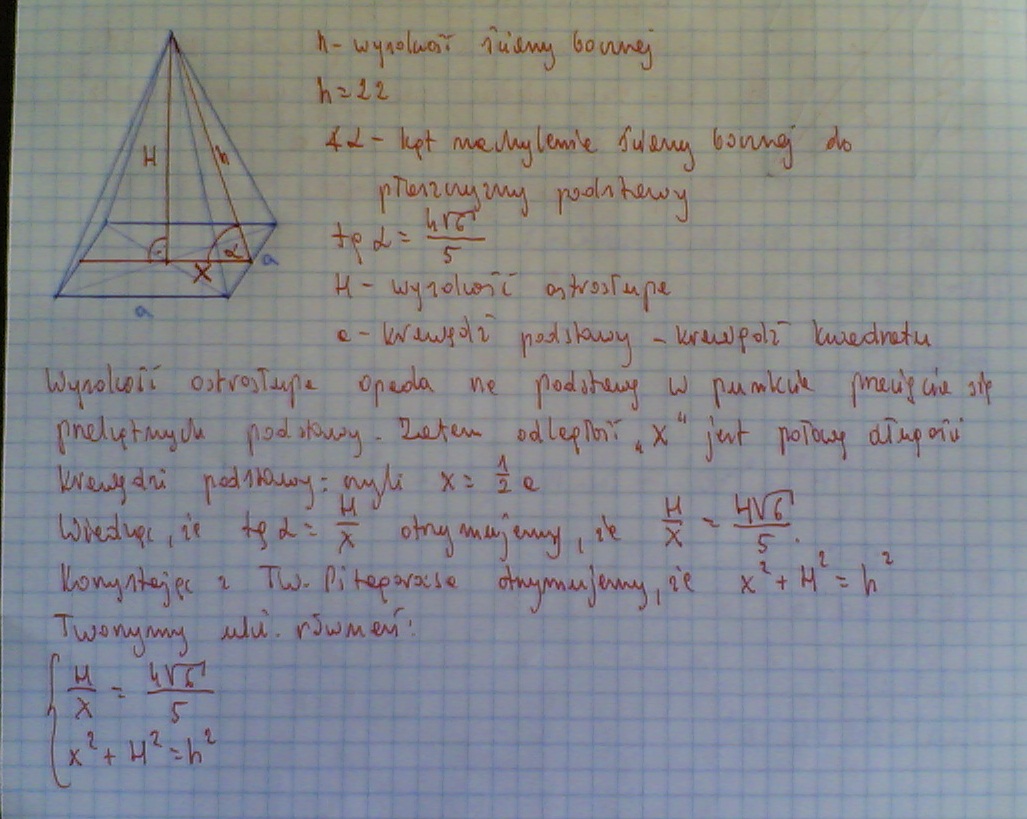 h - wysokość ściany bocznej
h = 22
∡α - kąt nachylenia ściany bocznej do
płaszczyzny podstawy
tg α = 4√6 / 5
H - wysokość ostrosłupa
a - krawędź podstawy - krawędź kwadratu
H
h
α
x
a
a
Wysokość ostrosłupa opada na podstawę w punkcie przecięcia się
przekątnych podstawy. Zatem odległość „x" jest połową długości
krawędzi podstawy: czyli x = 1/2 a
Wiedząc, że tg α = H/x otrzymujemy, że H/x = 4√6 / 5.
Korzystając z Tw. Pitagorasa otrzymujemy, że x² + H² = h²
Tworzymy ukł. równań:
H/x = 4√6 / 5
x² + H² = h²